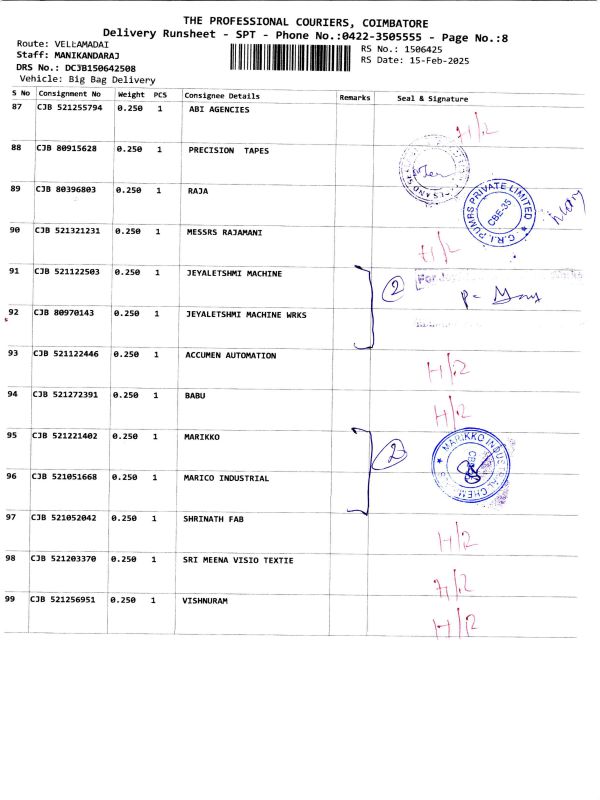 THE PROFESSIONAL COURIERS, COIMBATORE
Delivery Runsheet - SPT - Phone No.:0422-3505555 - Page No.:8
Route: VELLAMADAI
Staff: MANIKANDARAJ
DRS No.: DCJB150642508
Vehicle: Big Bag Delivery
RS No.: 1506425
RS Date: 15-Feb-2025
S No Consignment No Weight PCS Consignee Details Remarks Seal & Signature
87 CJB 521255794 0.250 1 ABI AGENCIES H/2
88 CJB 80915628 0.250 1 PRECISION TAPES
89 CJB 80396803 0.250 1 RAJA C.R.I. PUMPS PRIVATE LIMITED CBE-35
90 CJB 521321231 0.250 1 MESSRS RAJAMANI H/2
91 CJB 521122503 0.250 1 JEYALETSHMI MACHINE 2 For
92 CJB 80970143 0.250 1 JEYALETSHMI MACHINE WRKS
93 CJB 521122446 0.250 1 ACCUMEN AUTOMATION H/2
94 CJB 521272391 0.250 1 BABU H/2
95 CJB 521221402 0.250 1 MARIKKO 2 MARIKKO INDUSTRIAL CHEM
96 CJB 521051668 0.250 1 MARICO INDUSTRIAL
97 CJB 521052042 0.250 1 SHRINATH FAB H/2
98 CJB 521203370 0.250 1 SRI MEENA VISIO TEXTIE H/2
99 CJB 521256951 0.250 1 VISHNURAM H/2